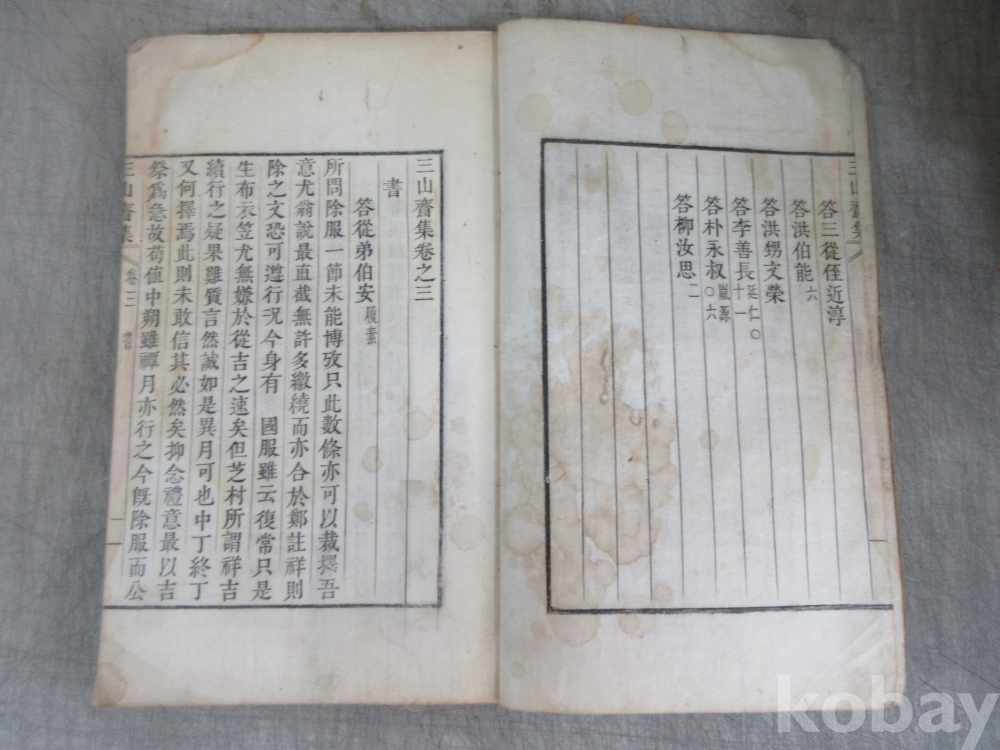 三山齋集
答三從侄近淳
答洪伯能六
答洪甥文榮
答李善長延仁○十一
答朴永叔胤源○六
答柳汝思二
三山齋集卷之三
書
答從弟伯安履素
所問除服一節未能博攷只此數條亦可以裁擇吾
意尤翁說最直截無許多繳繞而亦合於鄭註祥則
除之文恐可遵行况今身有 國服雖云復常只是
生布衣笠尤無嫌於從吉之速矣但芝村所謂祥吉
續行之疑果難質言然誠如是異月可也中丁終丁
又何擇焉此則未敢信其必然矣抑念禮意最以吉
祭爲急故苟值中朔雖禫月亦行之今旣除服而公
三山齋集
卷三
書
一
kobay